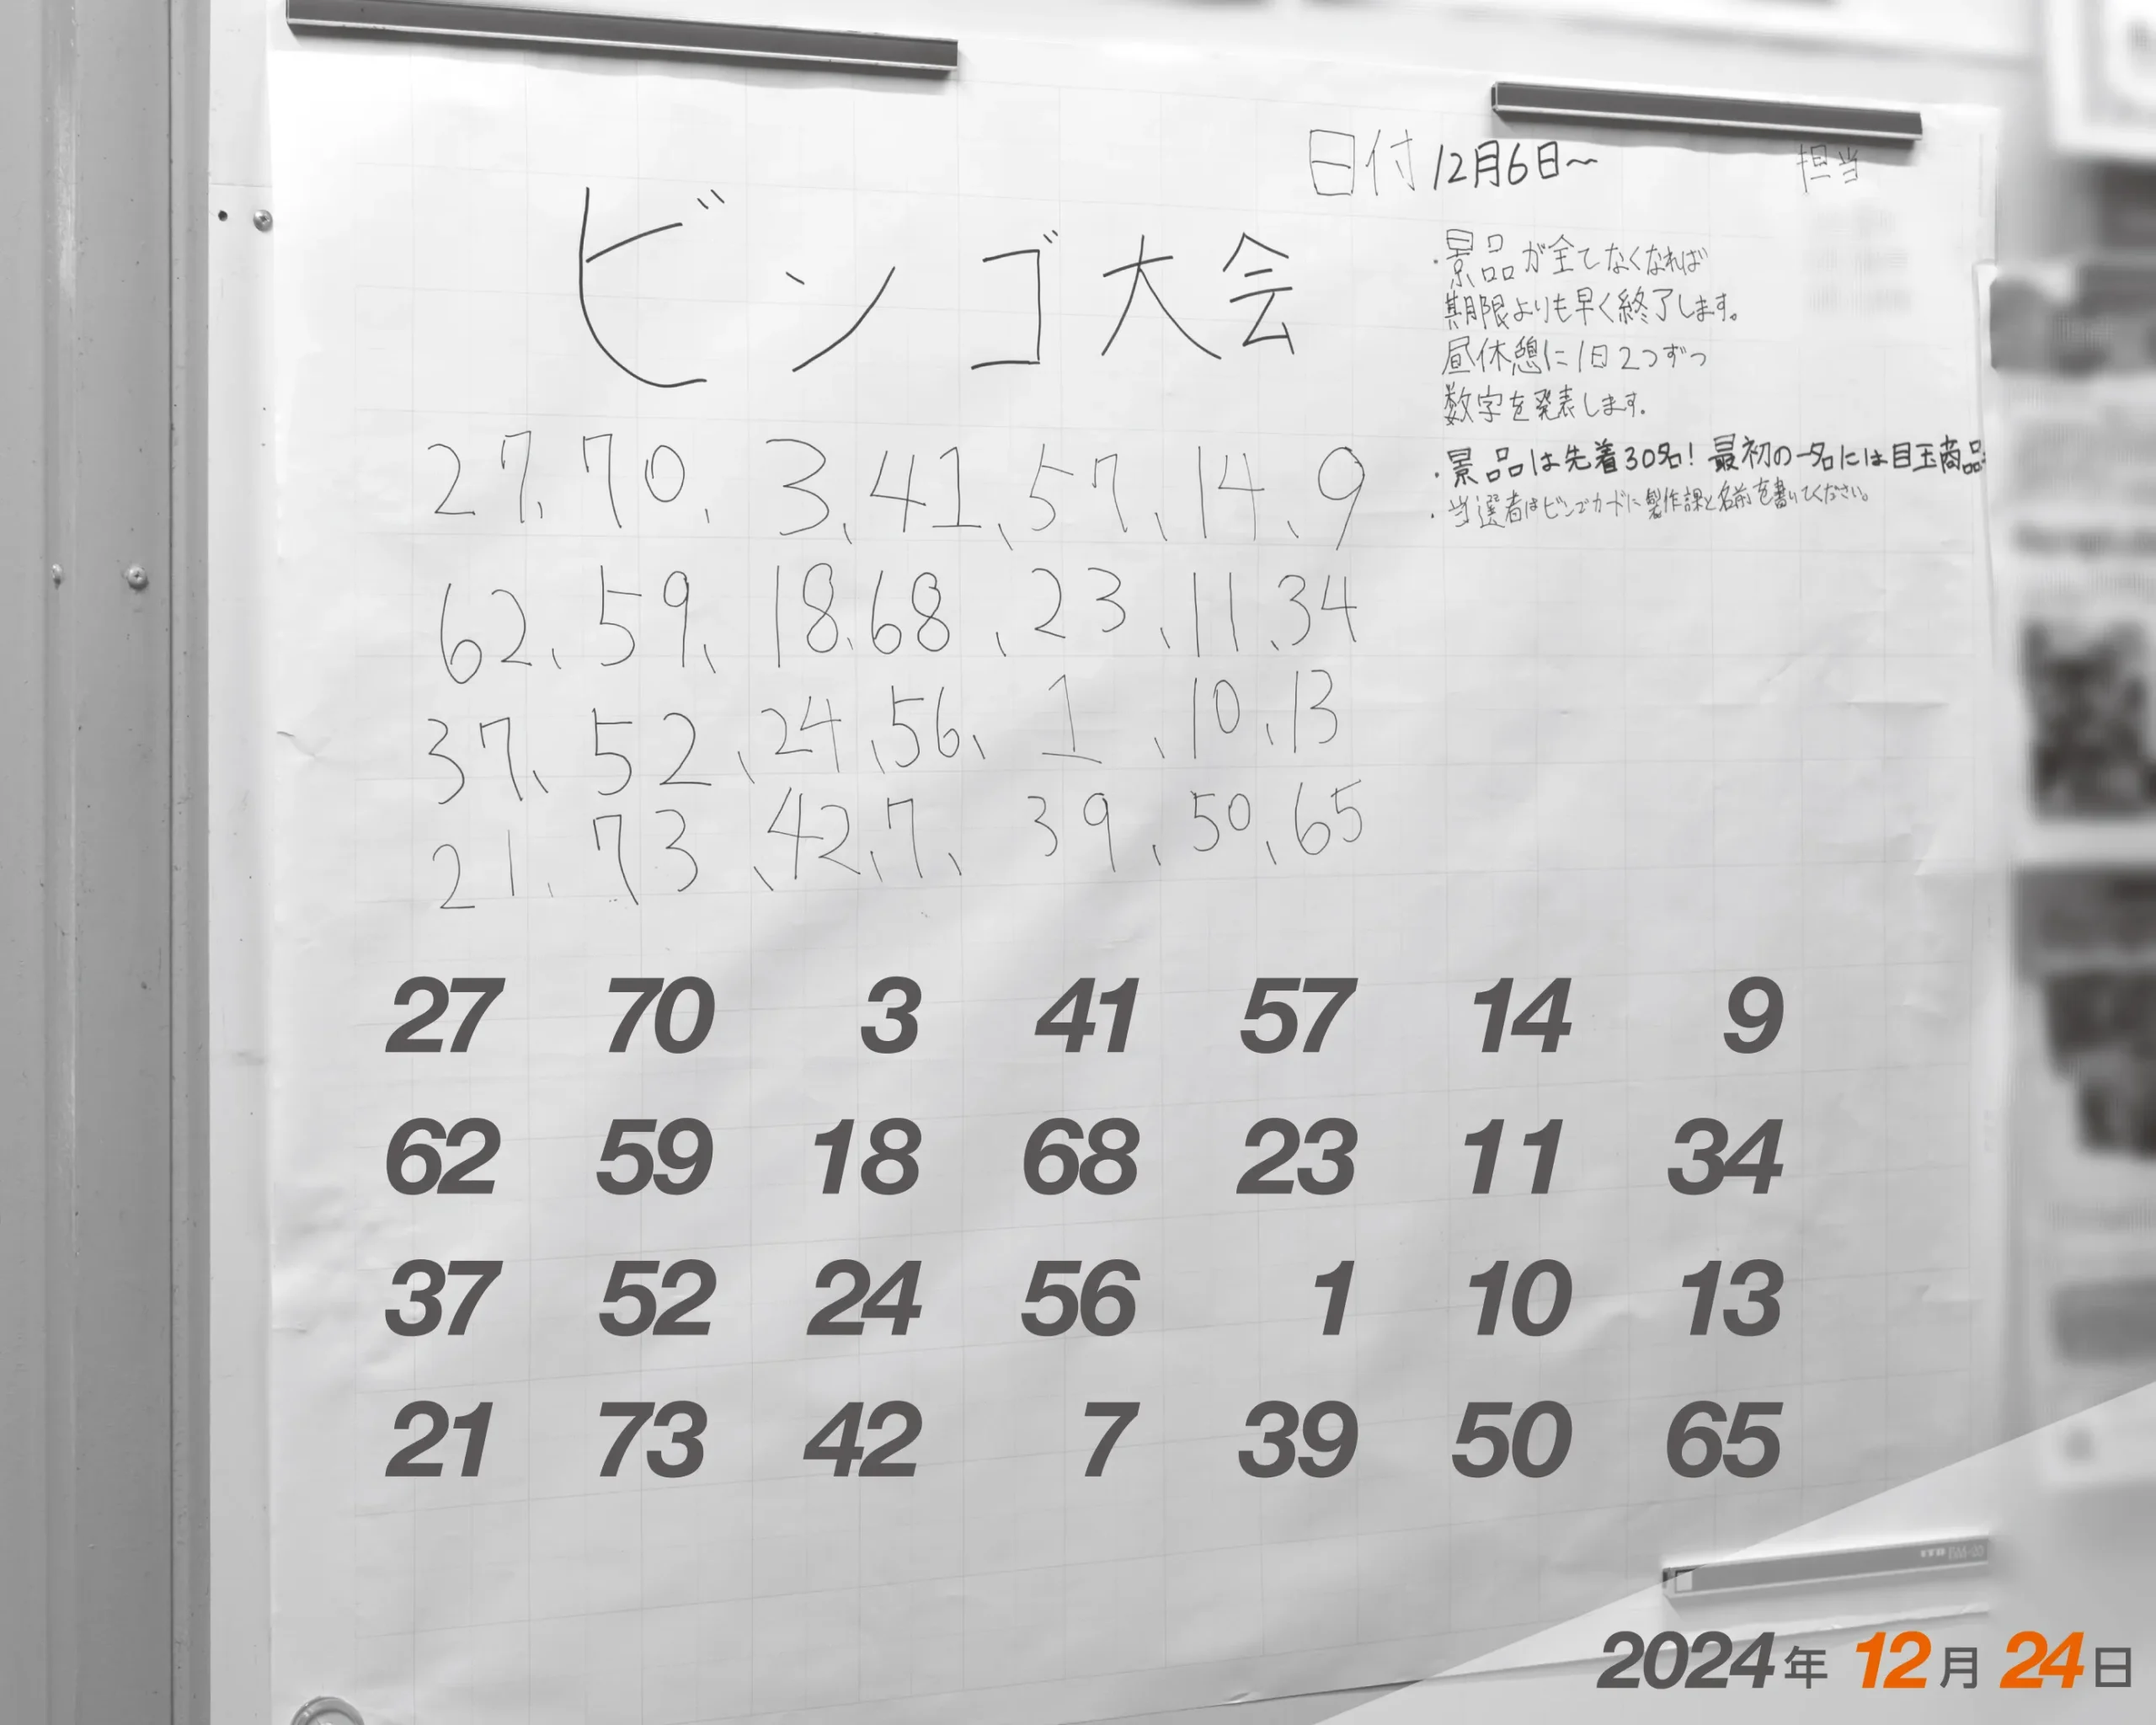 日付 12月6日~ 担当
ビンゴ大会
・景品が全てなくなれば
期限よりも早く終了します。
昼休憩に1日2つずつ
数字を発表します。
・景品は先着30名! 最初の一名には目玉商品
・当選者はビンゴカードに製作課と名前を書いてください。
27、70、3、41、57、14、9
62、59、18、68、23、11、34
37、52、24、56、1、10、13
21、73、42、7、39、50、65
27 70 3 41 57 14 9
62 59 18 68 23 11 34
37 52 24 56 1 10 13
21 73 42 7 39 50 65
2024年 12月 24日